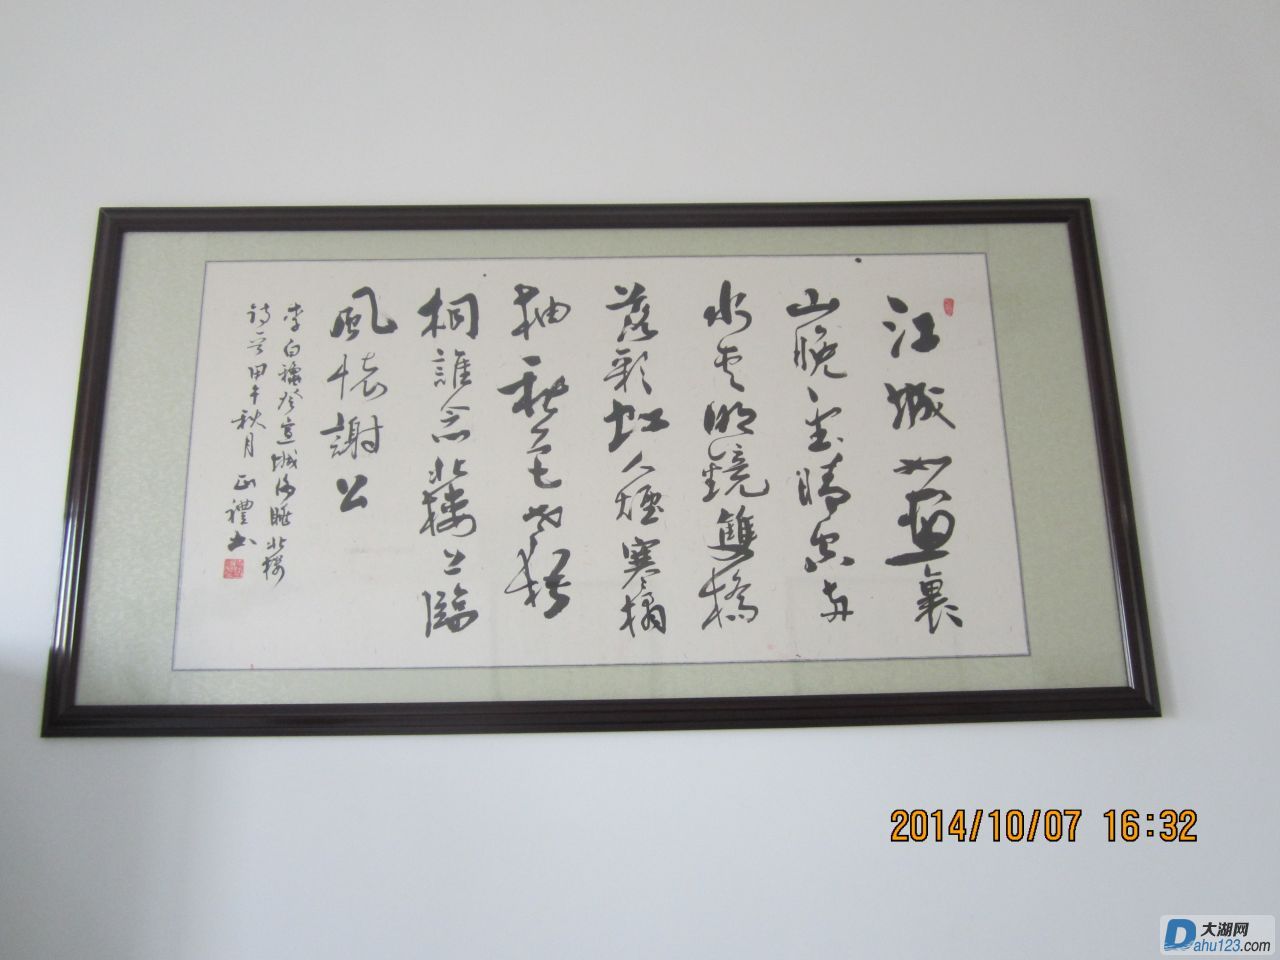 江城如畫裏
山晚望晴空兩
水夾明鏡雙橋
落彩虹人煙寒橘
柚秋色老梧
桐誰念北樓上臨
風懷謝公
李白穐登宣城謝朓北樓
詩一首甲午秋月
正禮書
2014/10/07 16:32
大湖网
Dahu123.com